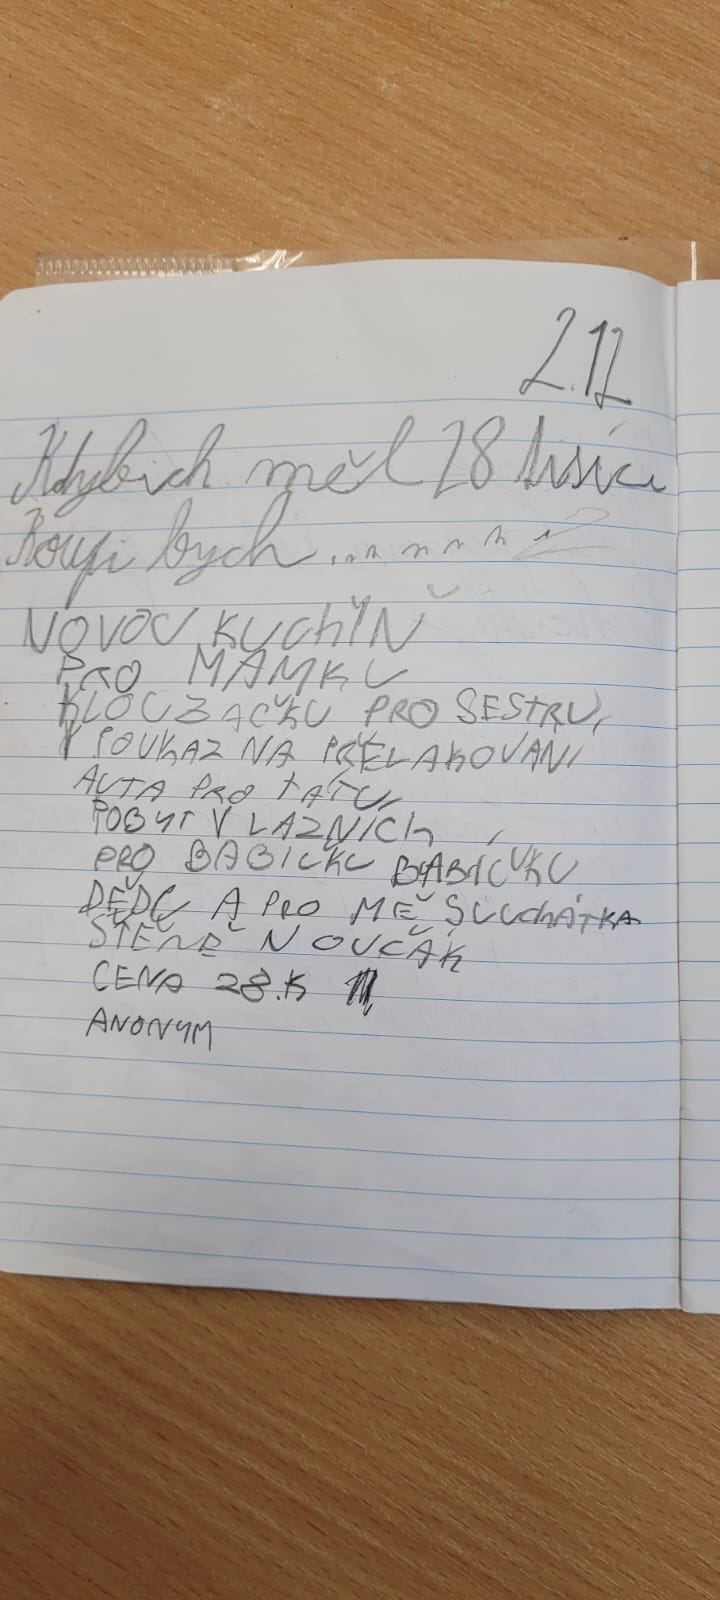 2.12
Kdybich měl 28 tisíc
Koupi bych ........
NOVOU KUCHYŇ
PRO MAMKU
KLOUZAČKU PRO SESTRU,
POUKAZ NA PŘELAKOVANÍ
AUTA PRO TÁTU,
POBYT V LAZNÍCH
PRO BABIČKU BABIČUKU
DĚDU A PRO MĚ SLUCHÁTKA
ŠTĚNĚ NOUČÁK
CENA 28.K
ANONYM